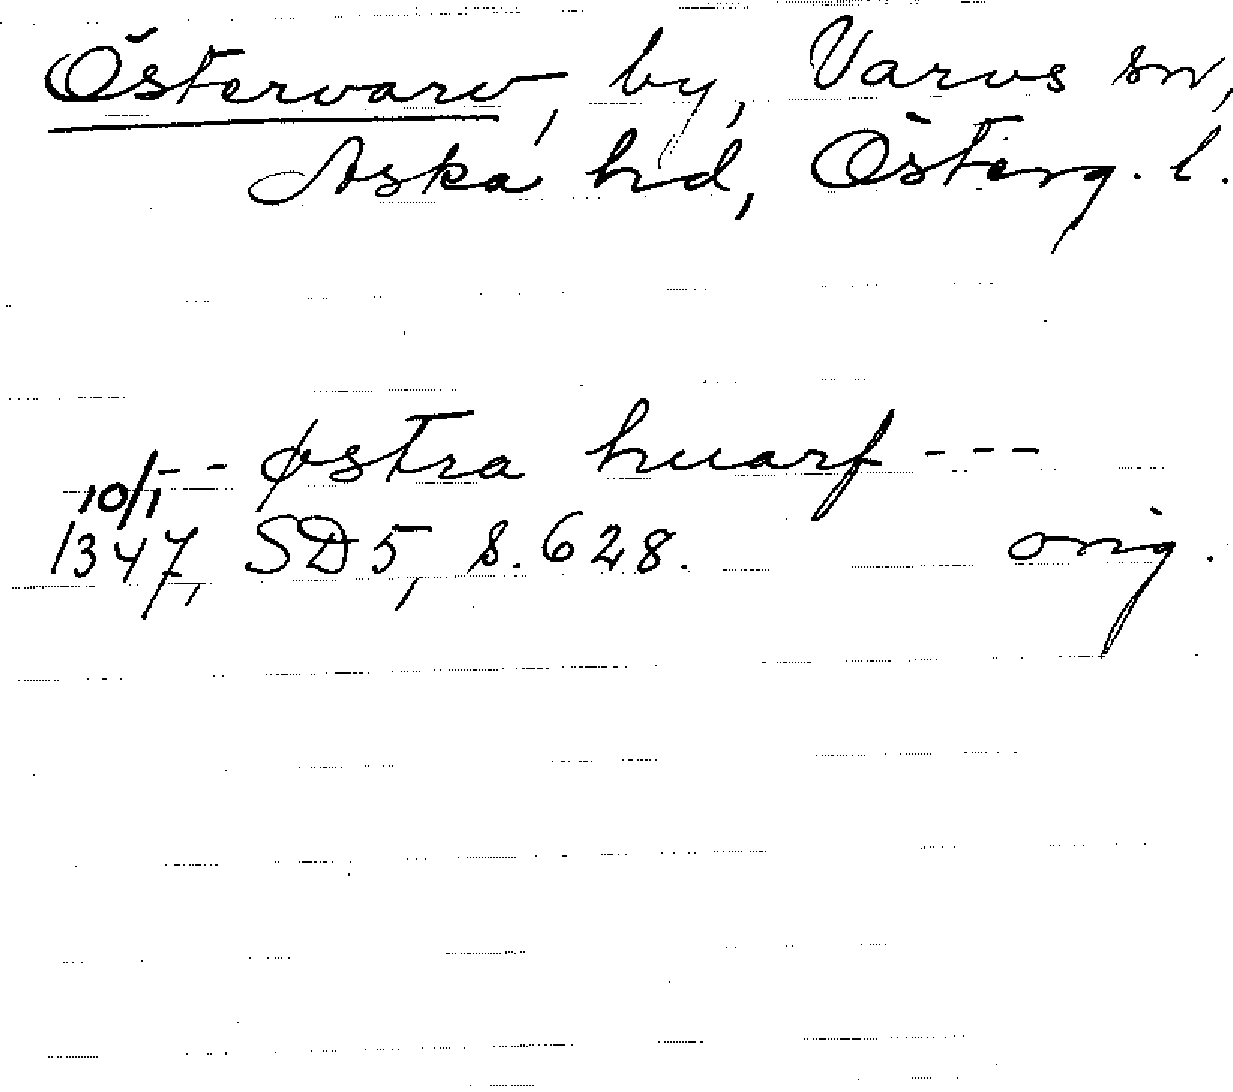 Östervarv, by, Varvs sn,
Aska hd, Österg. l.
-- østra huarf ---
10/1
1347, SD 5, s. 628. orig.